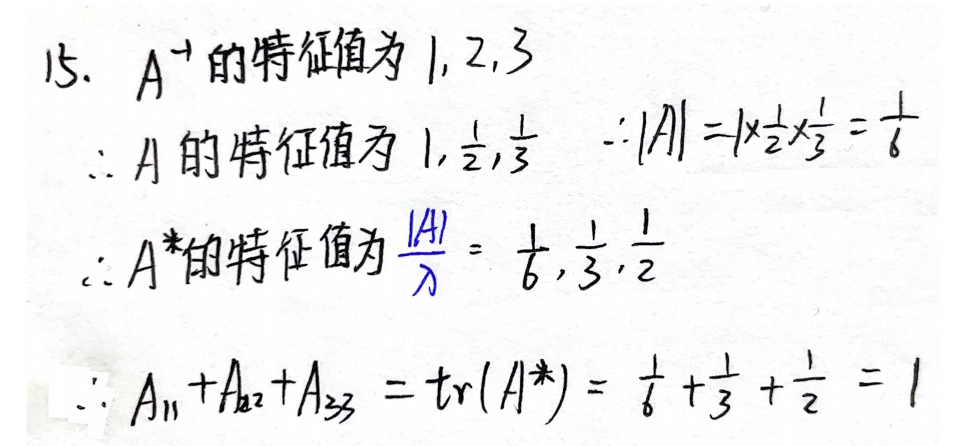 15. A⁻¹的特征值为 1, 2, 3
∴ A 的特征值为 1, 1/2, 1/3 ∴|A| = 1×1/2×1/3 = 1/6
∴ A*的特征值为 |A|/λ = 1/6, 1/3, 1/2
∴ A₁₁+A₂₂+A₃₃ = tr(A*) = 1/6 + 1/3 + 1/2 = 1